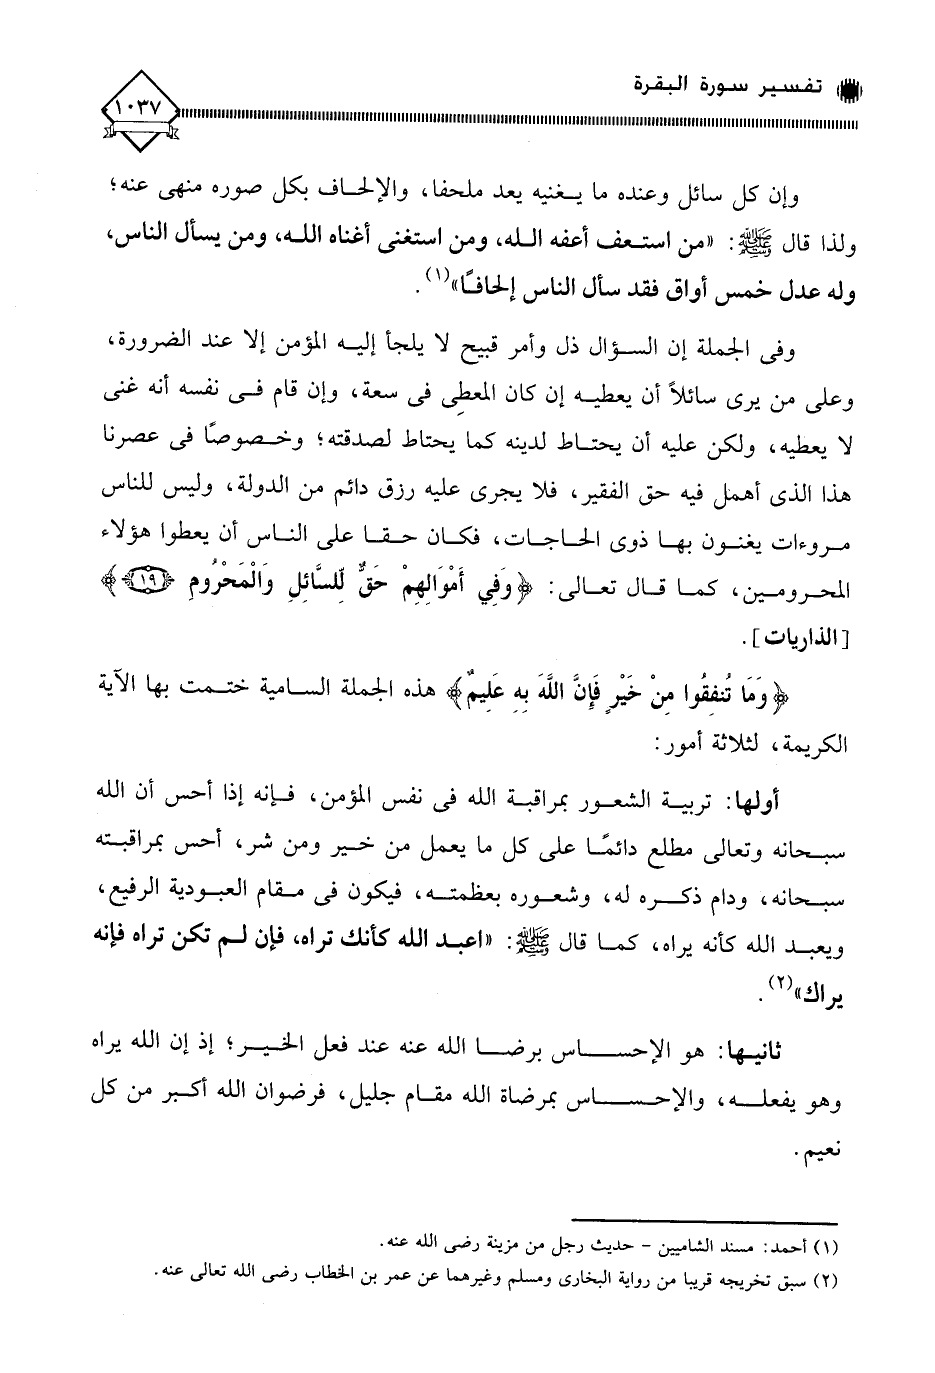 تفسير سورة البقرة
١٠٣٧
وإن كل سائل وعنده ما يغنيه يعد ملحفا، والإلحاف بكل صوره منهى عنه؛
ولذا قال ﷺ: «من استعف أعفه الله، ومن استغنى أغناه الله، ومن يسأل الناس،
وله عدل خمس أواق فقد سأل الناس إلحافًا»(١).
وفى الجملة إن السؤال ذل وأمر قبيح لا يلجأ إليه المؤمن إلا عند الضرورة،
وعلى من يرى سائلاً أن يعطيه إن كان المعطِى فى سعة، وإن قام فى نفسه أنه غنى
لا يعطيه، ولكن عليه أن يحتاط لدينه كما يحتاط لصدقته؛ وخصوصًا فى عصرنا
هذا الذى أهمل فيه حق الفقير، فلا يجرى عليه رزق دائم من الدولة، وليس للناس
مروءات يغنون بها ذوى الحاجات، فكان حقا على الناس أن يعطوا هؤلاء
المحرومين، كما قال تعالى: ﴿وَفِي أَمْوَالِهِمْ حَقٌّ لِّلسَّائِلِ وَالْمَحْرُومِ ﴿١٩﴾﴾
[الذاريات].
﴿وَمَا تُنفِقُوا مِنْ خَيْرٍ فَإِنَّ اللَّهَ بِهِ عَلِيمٌ﴾ هذه الجملة السامية ختمت بها الآية
الكريمة، لثلاثة أمور:
أولها: تربية الشعور بمراقبة الله فى نفس المؤمن، فإنه إذا أحس أن الله
سبحانه وتعالى مطلع دائمًا على كل ما يعمل من خير ومن شر، أحس بمراقبته
سبحانه، ودام ذكره له، وشعوره بعظمته، فيكون فى مقام العبودية الرفيع،
ويعبد الله كأنه يراه، كما قال ﷺ: «اعبد الله كأنك تراه، فإن لم تكن تراه فإنه
يراك»(٢).
ثانيها: هو الإحساس برضا الله عنه عند فعل الخير؛ إذ إن الله يراه
وهو يفعله، والإحساس بمرضاة الله مقام جليل، فرضوان الله أكبر من كل
نعيم.
(١) أحمد: مسند الشاميين - حديث رجل من مزينة رضى الله عنه.
(٢) سبق تخريجه قريبا من رواية البخارى ومسلم وغيرهما عن عمر بن الخطاب رضى الله تعالى عنه.